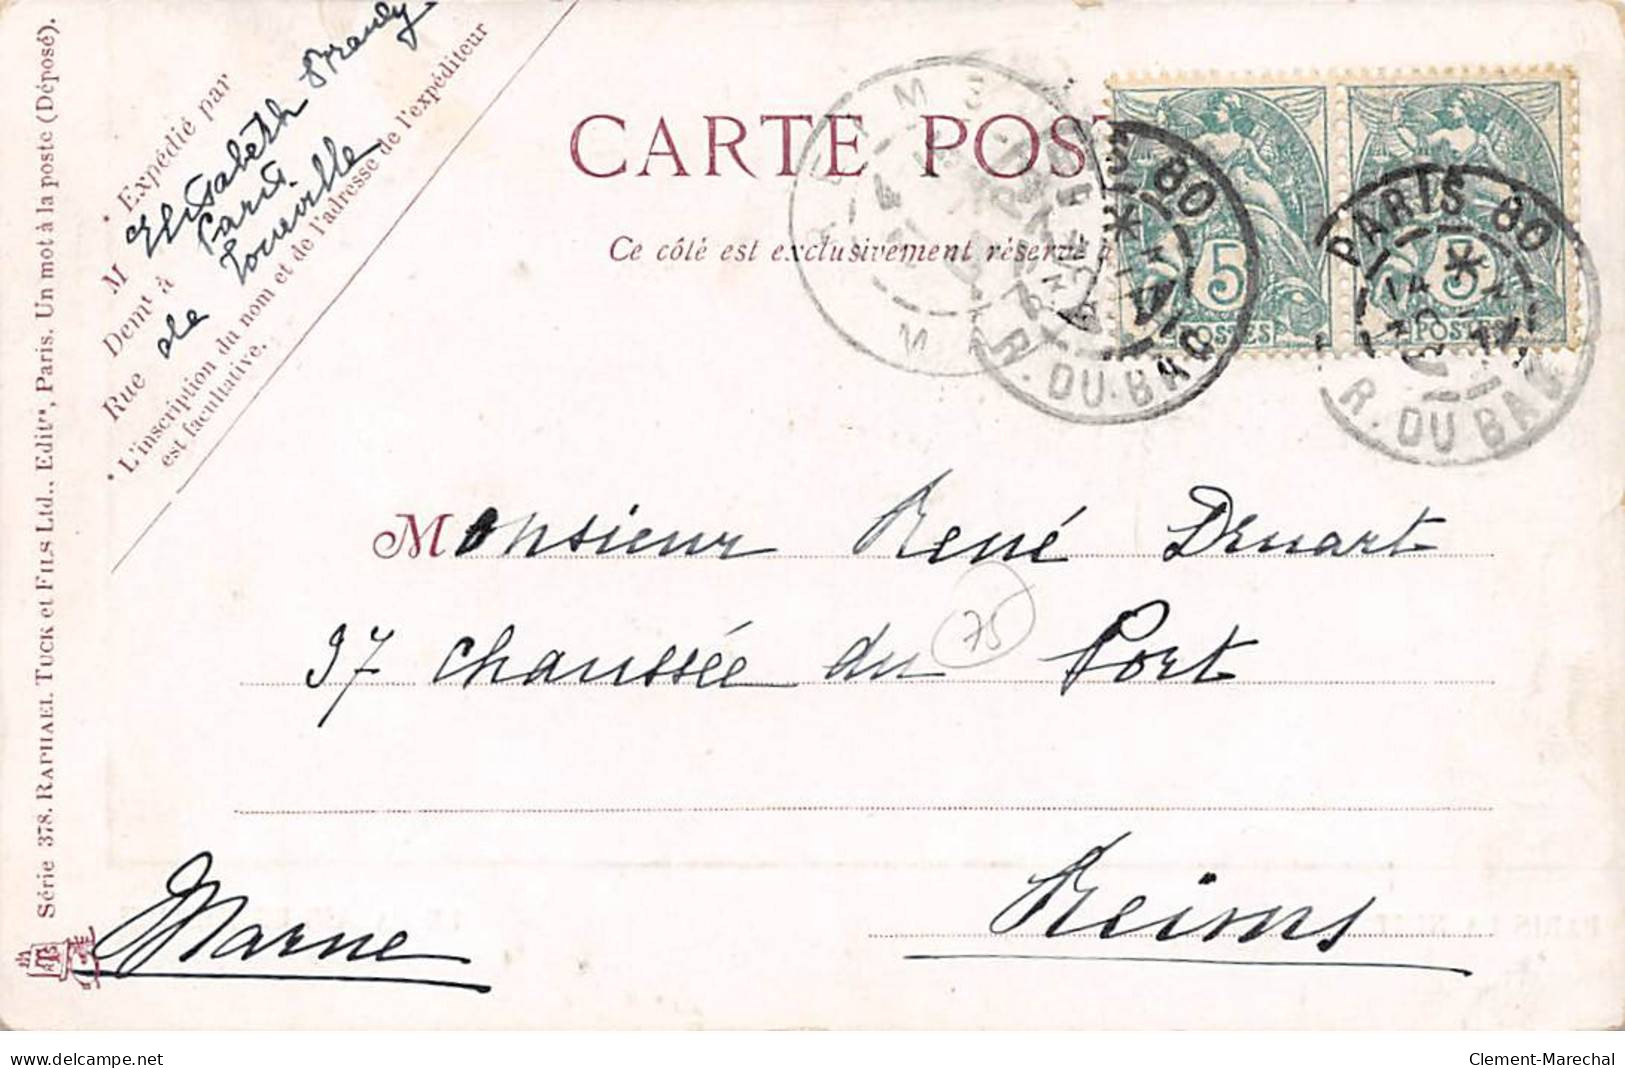 Série 378. RAPHAEL TUCK et FILS Ltd., Editrs, Paris. Un mot à la poste (Déposé).
• Expédié par
M Elisabeth
Demt à Paris.
Rue de
• L'inscription du nom et de l'adresse de l'expéditeur
est facultative.
CARTE POST
Ce côté est exclusivement réservé à
REIMS
MARNE
PARIS 80
R. DU BAC
5
POSTES
PARIS 80
R. DU BAC
5
POSTES
Monsieur René Druart
37 chaussée du Port
75
Reims
Marne
delcampe.net
Clement-Marechal